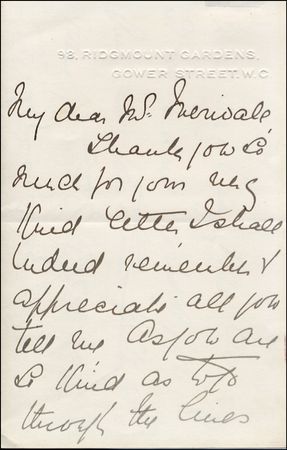 98, RIDGMOUNT GARDENS,
GOWER STREET. W.C
My dear Mr. Merivale,
Thank you so
much for your very
kind letter I shall
indeed remember &
appreciate all you
tell me As you are
so kind as to go
through the lines